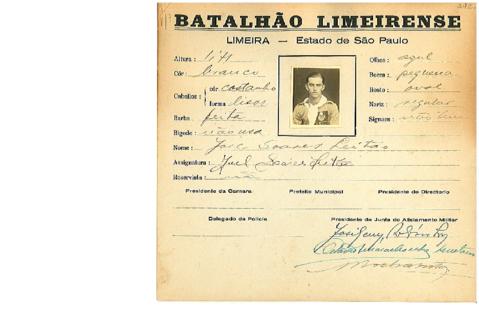 BATALHÃO LIMEIRENSE
LIMEIRA — Estado de São Paulo
Altura: 1,71
Côr: branco
Cabellos: côr castanho
forma lisos
Barba: feita
Bigode: não usa
Olhos: azul
Bocca: pequena
Rosto: oval
Nariz: regular
Signaes: não tem
Nome: José Soares Leitão
Assignatura: Soares Leitão
Reservista: não
Presidente da Camara
Prefeito Municipal
Presidente do Directorio
Delegado de Policia
Presidente da Junta de Alistamento Militar